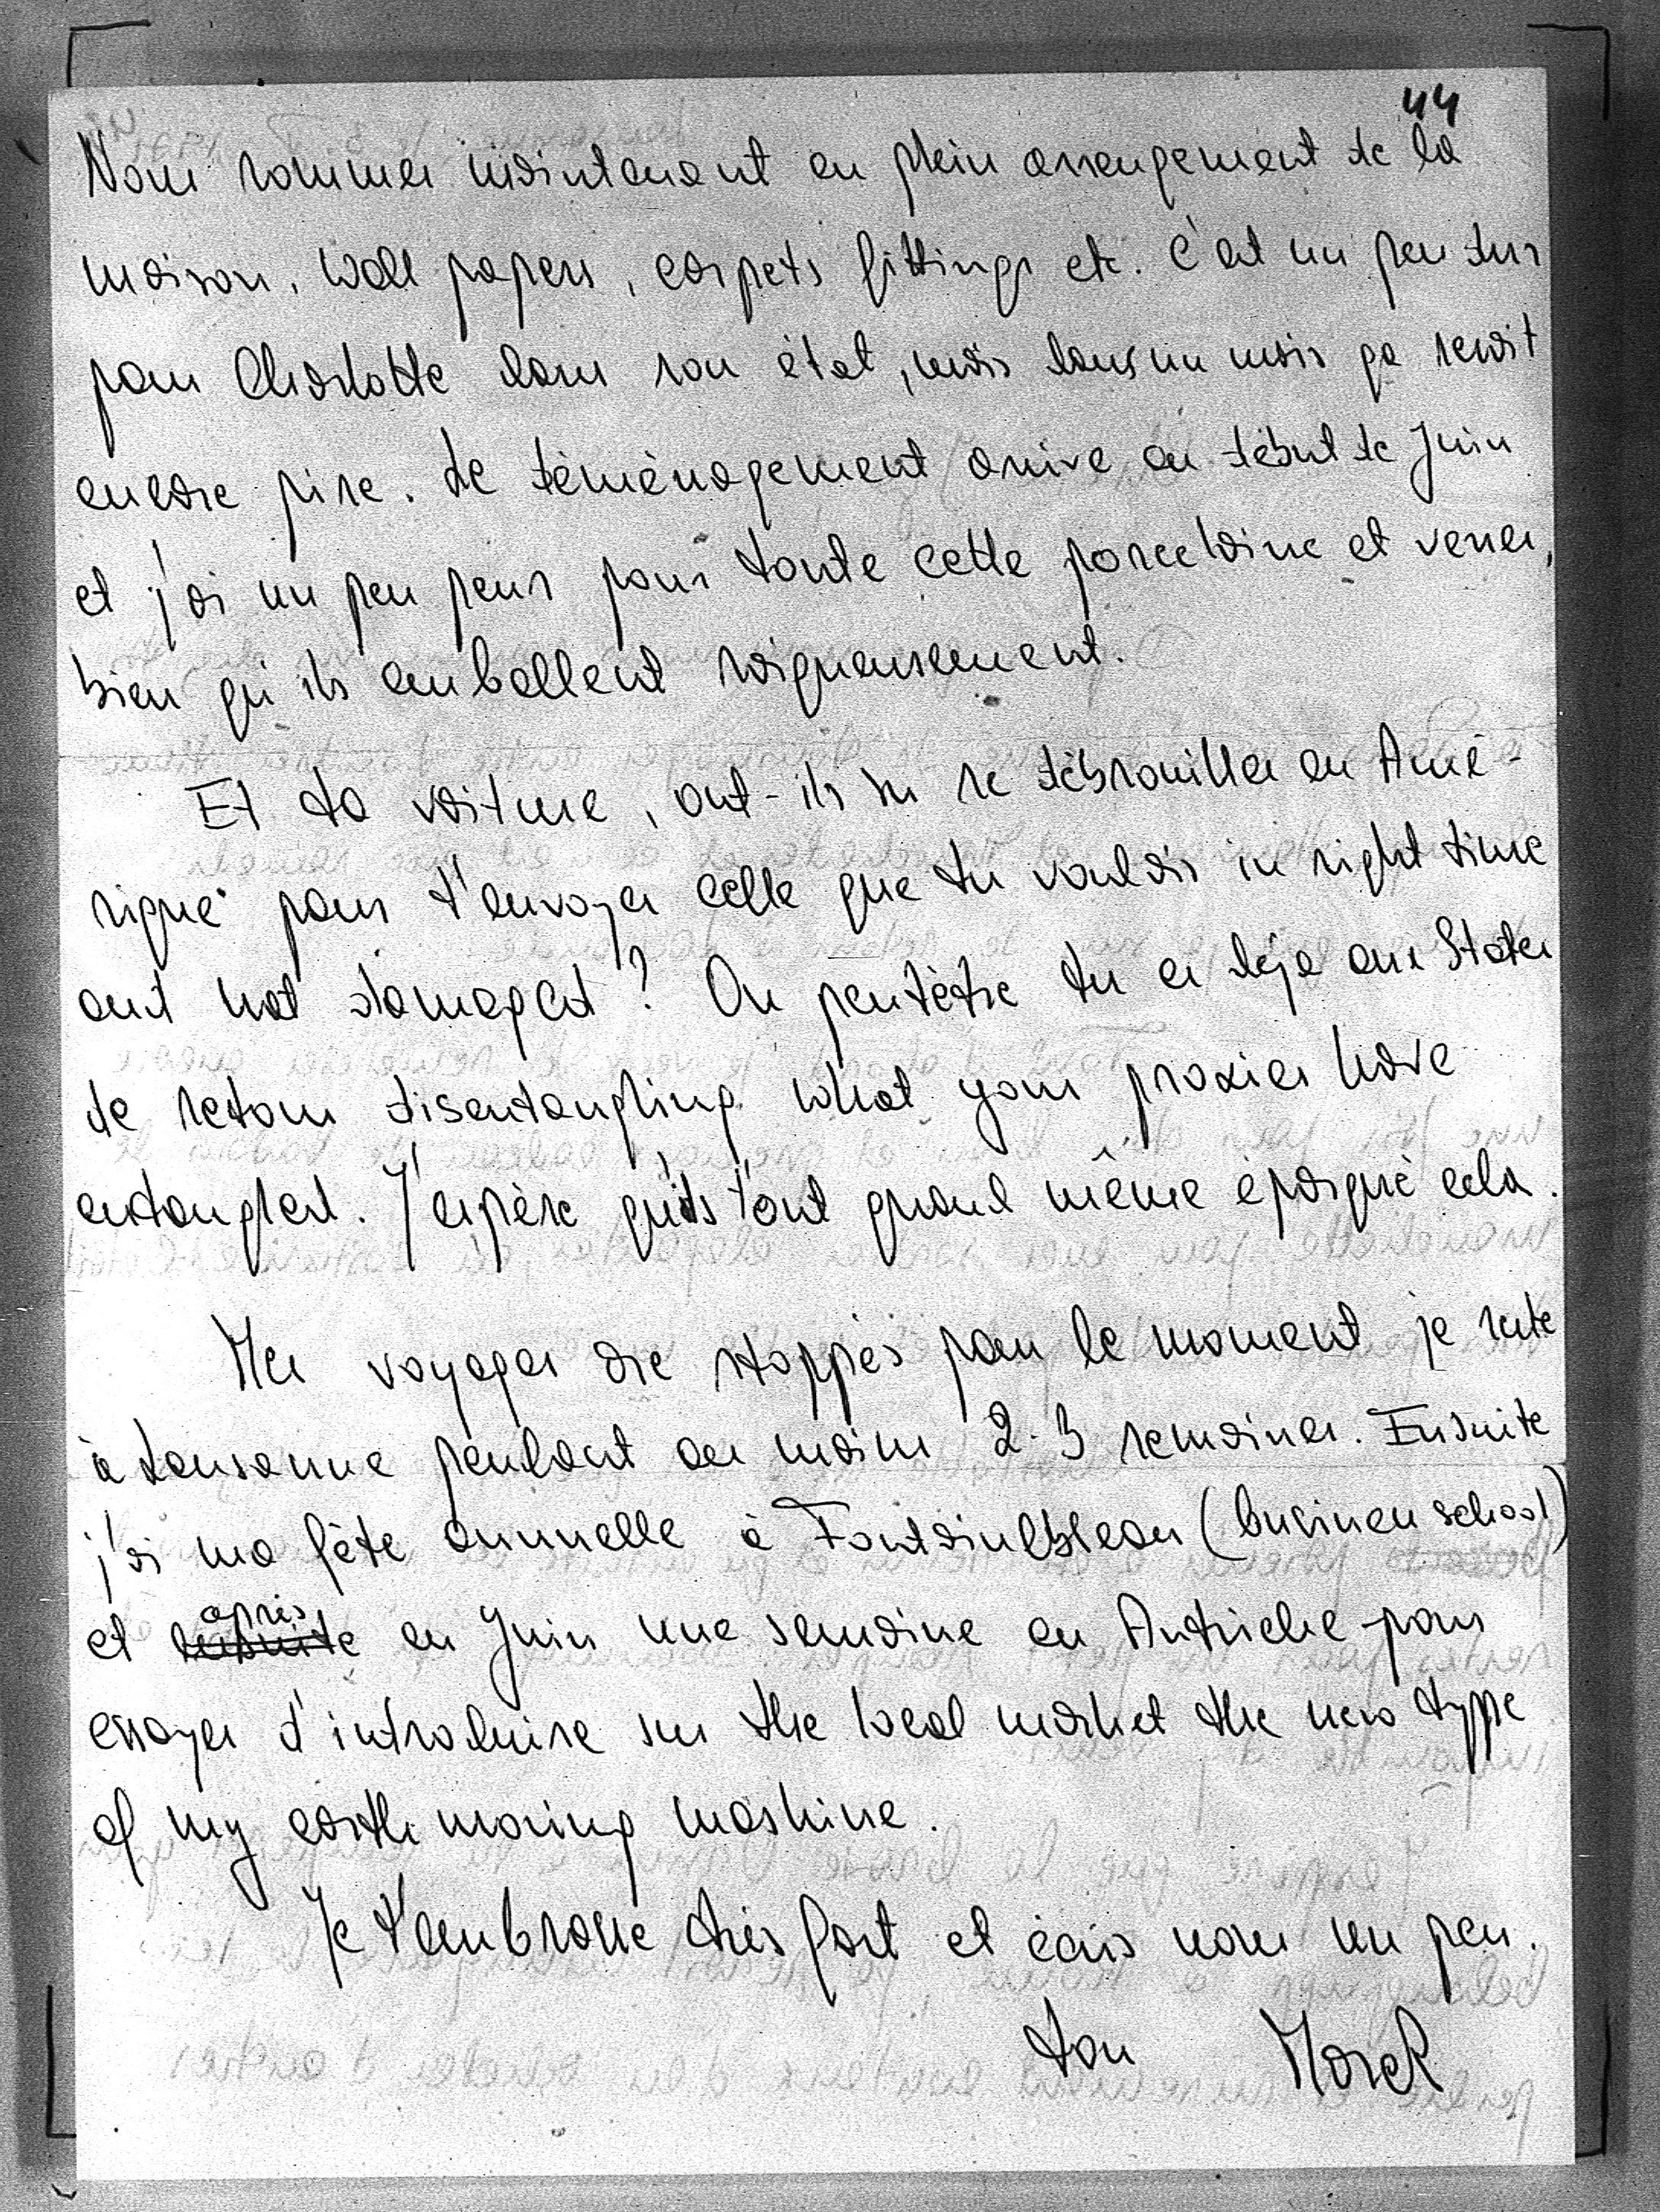 44
Nous sommes maintenant en plein arrengement de la
maison, wall papers, carpets fittings etc. C'est un peu dur
pour Charlotte dans son état, mais dans un mois ça serait
encore pire. Le déménagement arrive au début de Juin
et j'ai un peu peur pour toute cette porcelaine et verres,
bien qu'ils emballent soigneusement.
Et ta voiture, ont-ils su se débrouiller en Amé-
rique pour t'envoyer celle que tu voulais in right time
and not damaged? Ou peutêtre tu es déja aux States
de retour disentangling what your proxies have
entangled. J'espère qu'ils t'ont quand même épargné cela.
Mes voyages are stoppés pour le moment je reste
à Lausanne pendant au moins 2-3 semaines. Ensuite
j'ai ma fête annuelle à Fontainebleau (business school)
et ensuite après en Juin une semaine en Autriche pour
essayer d'introduire sur the local market the new type
of my earth moving mashine.
Je t'embrasse très fort et écris nous un peu.
ton Marek